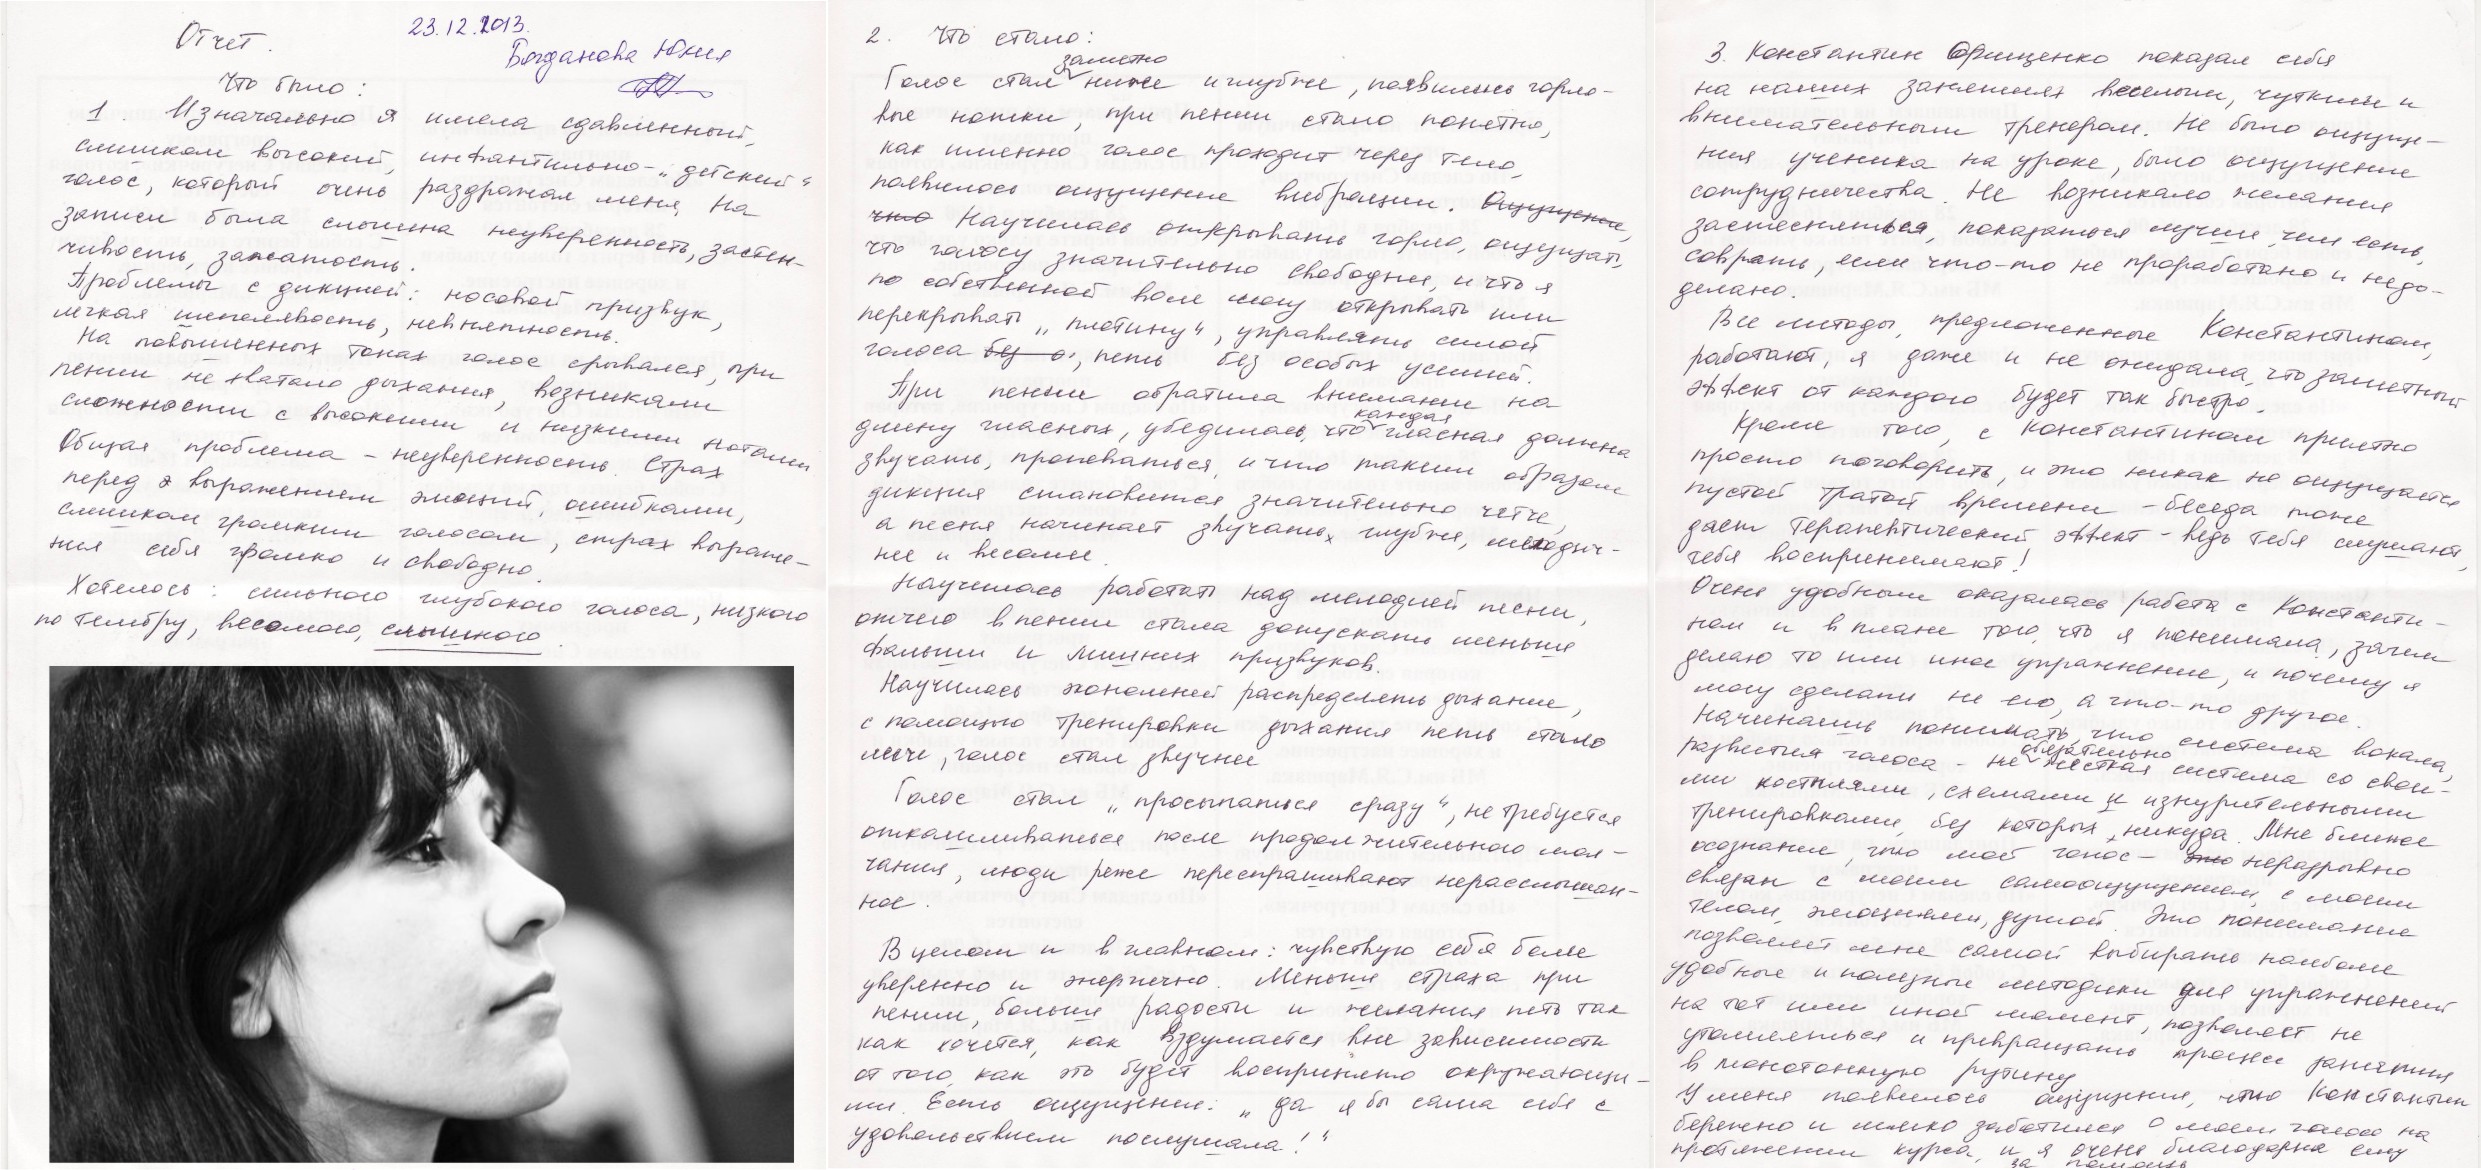 Отчет.
23.12.2013.
Богданова Юлия
Что было:
1. Изначально я имела сдавленный,
слишком высокий, инфантильно-„детский"
голос, который очень раздражал меня. На
записи была слышна неуверенность, застен-
чивость, зажатость.
Проблемы с дикцией: носовой призвук,
легкая шепелявость, невнятность.
На повышенных тонах голос срывался, при
пении не хватало дыхания, возникали
сложности с высокими и низкими нотами
Общая проблема - неуверенность. Страх
перед выражением эмоций, ошибками,
слишком громким голосом, страх выраже-
ния себя громко и свободно.
Хотелось: сильного глубокого голоса, низкого
по тембру, весомого, слышного.
2. Что стало:
Голос стал заметно ниже и глубже, появились горло-
вые нотки, при пении стало понятно,
как именно голос проходит через тело,
появилось ощущение вибрации. Ощущение,
что Научилась открывать горло, ощущать,
что голосу значительно свободнее, и что я
по собственной воле могу открывать или
перекрывать „плотину", управлять силой
голоса без о, петь без особых усилий.
При пении обратила внимание на
длину гласных, убедилась, что каждая гласная должна
звучать, пропеваться, и что таким образом
дикция становится значительно четче,
а песня начинает звучать глубже, мелодич-
нее и весомее.
Научилась работать над мелодией песни,
отчего в пении стала допускать меньше
фальши и лишних призвуков.
Научилась экономней распределять дыхание,
с помощью тренировки дыхания петь стало
легче, голос стал звучнее
Голос стал „просыпаться сразу", не требуется
откашливаться после продолжительного мол-
чания, люди реже переспрашивают нерасслышан-
ное.
В целом и в главном: чувствую себя более
уверенно и энергично. Меньше страха при
пении, больше радости и желания петь так
как хочется, как вздумается вне зависимости
от того, как это будет воспринято окружающи-
ми. Есть ощущение: „да я бы сама себя с
удовольствием послушала!"
3. Константин Фрищенко показал себя
на наших занятиях веселым, чутким и
внимательным тренером. Не было ощуще-
ния ученика на уроке, было ощущение
сотрудничества. Не возникало желания
застесняться, показаться лучше, чем есть,
соврать, если что-то не проработано и недо-
делано.
Все методы, предложенные Константином,
работают, я даже и не ожидала, что заметный
эффект от каждого будет так быстро.
Кроме того, с Константином приятно
просто поговорить, и это никак не ощущается
пустой тратой времени - беседа тоже
дает терапевтический эффект - ведь тебя слушают,
тебя воспринимают!
Очень удобным оказалась работа с Константи-
ном и в плане того, что я понимала, зачем
делаю то или иное упражнение, и почему я
могу сделать не его, а что-то другое.
Начинаешь понимать, что система вокала,
развития голоса - не обязательно жёсткая система со свои-
ми костылями, схемами и изнурительными
тренировками, без которых никуда. Мне ближе
осознание, что мой голос - это неразрывно
связан с моим самоощущением, с моим
телом, эмоциями, душой. Это понимание
позволяет мне самой выбирать наиболее
удобные и полезные методики для упражнений
на тот или иной момент, позволяет не
утомляться и превращать процесс занятия
в монотонную рутину
У меня появилось ощущение, что Константин
бережно и мягко заботился о моем голосе на
протяжении курса, и я очень благодарна ему
за помощь